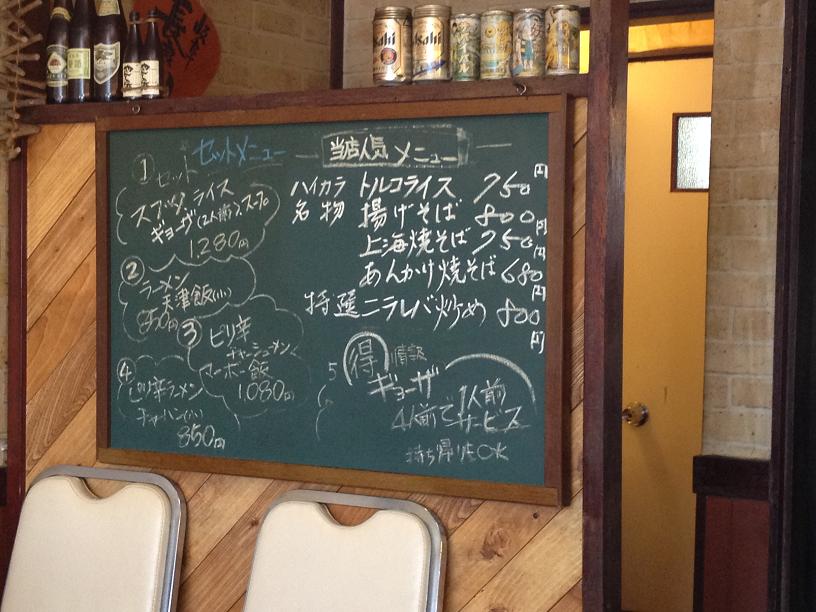 セットメニュー
① セット
スブタ、ライス
ギョーザ(2人前)、スープ
1,280円
② ラーメン
天津飯(小)
850円
③ ピリ辛
チャーシューメン
マーボー飯
1,080円
④ ピリ辛ラーメン
チャーハン(小)
850円
当店人気メニュー
ハイカラ トルコライス 750円
名物 揚げそば 800円
上海焼そば 750円
あんかけ焼そば 680円
特選 ニラレバ炒め 800円
5
得 情報
ギョーザ
4人前で1人前
サービス
持ち帰りもOK
Asahi
Asahi